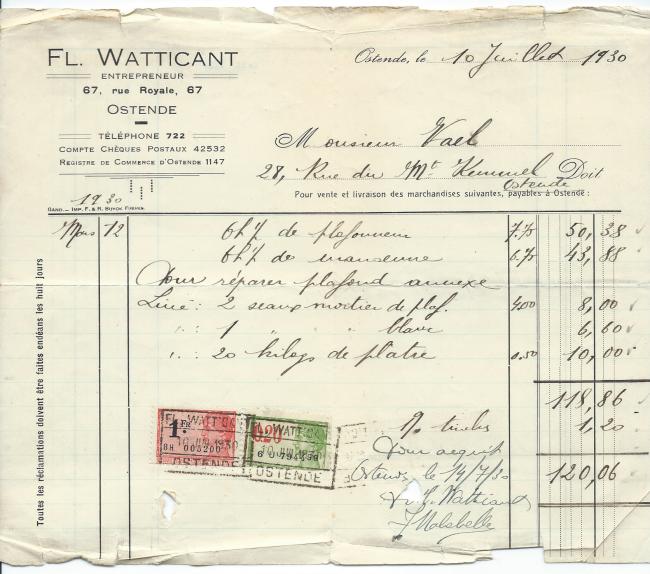 FL. WATTICANT
ENTREPRENEUR
67, rue Royale, 67
OSTENDE
TÉLÉPHONE 722
COMPTE CHÈQUES POSTAUX 42532
REGISTRE DE COMMERCE D'OSTENDE 1147
Ostende, le 10 Juillet 1930
Monsieur Vael
28, Rue du Mt Kemmel Doit
Ostende
Pour vente et livraison des marchandises suivantes, payables à Ostende :
1930
GAND. — IMP. F. & R. BUYCK FRÈRES.
Mars 12 6h½ de plafonneur 7.75 50,38
6h½ de manœuvre 6.75 43,88
Pour réparer plafond annexe
Livré : 2 seaux mortier de plaf. 4.00 8,00
" : 1 " " blanc 6,60
" : 20 kilogs de platre 0.50 10,00
118,86
timbres 1,20
120,06
Pour acquit
Ostende, le 14/7/30
Watticant
Toutes les réclamations doivent être faites endéans les huit jours
1 FR
BH 003200
FL. WATTICANT
10 JUIL 1930
OSTENDE
0.20
FL. WATTICANT
10 JUIL 1930
OSTENDE